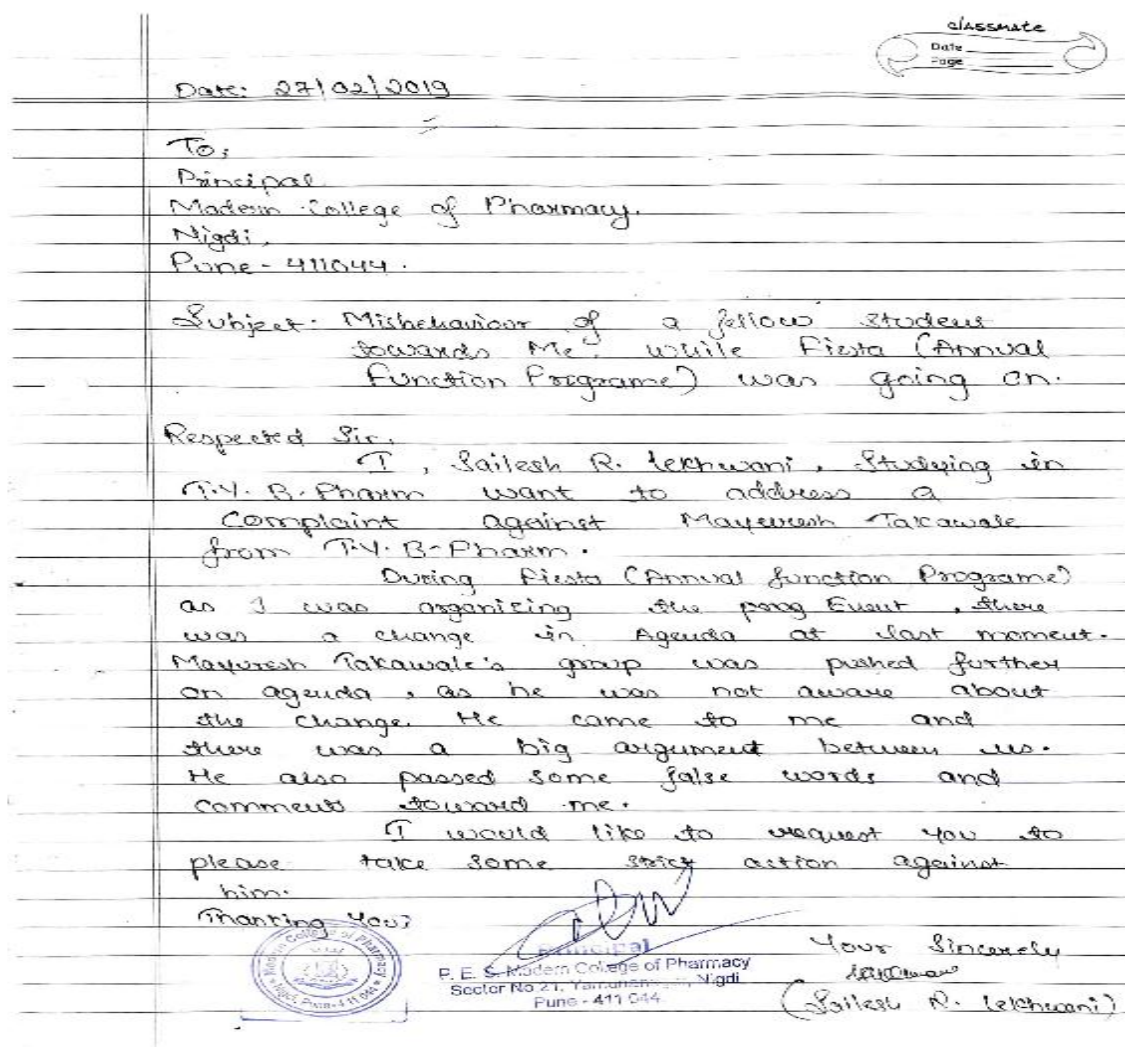 classmate
Date
Page
Date: 27/02/2019
To,
Principal
Modern College of Pharmacy.
Nigdi,
Pune - 411044.
Subject- Misbehaviour of a fellow Student
towards Me, while Fiesta (Annual
Function Programe) was going on.
Respected Sir,
I, Sailesh R. lekhwani, Studying in
T.Y. B-Pharm want to address a
Complaint against Mayuresh Takawale
from T.Y. B-Pharm.
During Fiesta (Annual function Programe)
as I was organizing the prog Event, there
was a change in Agenda at last moment.
Mayuresh Takawale's group was pushed further
on agenda, as he was not aware about
the change. He came to me and
there was a big argument between us.
He also passed some false words and
comments toward me.
I would like to request you to
please take some strict action against
him.
Thanking You,
Principal
P. E. S. Modern College of Pharmacy
Sector No 21, Nigdi
Pune - 411 044
Modern College of Pharmacy
Nigdi, Pune-411 044
Your Sincerely
(Sailesh R. lekhwani)